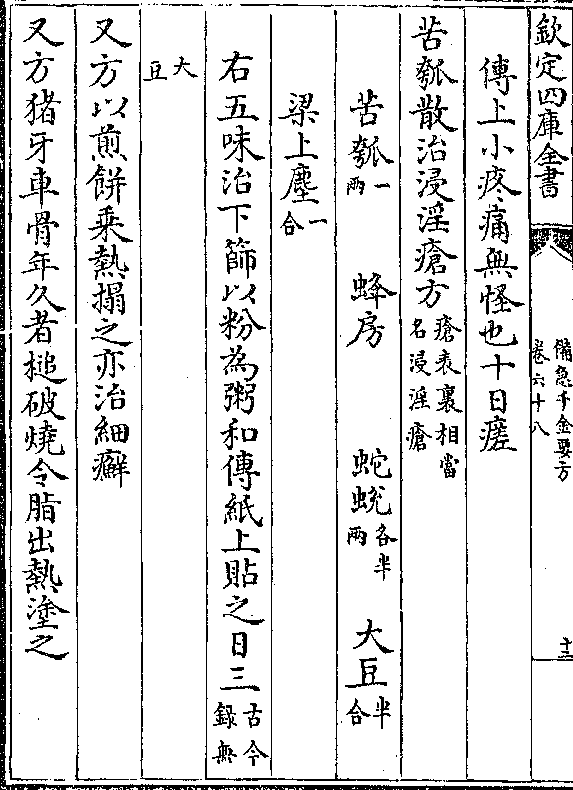 欽定四庫全書
備急千金要方
卷六十八
十三
傅上小疼痛無怪也十日瘥
苦瓠散治浸淫瘡方瘡表裏相當名浸淫瘡
苦瓠一兩 蜂房 蛇蛻各半兩 大豆半合
梁上塵一合
右五味治下篩以粉為粥和傅紙上貼之日三古今錄無
大豆
又方以煎餅乘熱搨之亦治細癬
又方猪牙車骨年久者槌破燒令脂出熱塗之